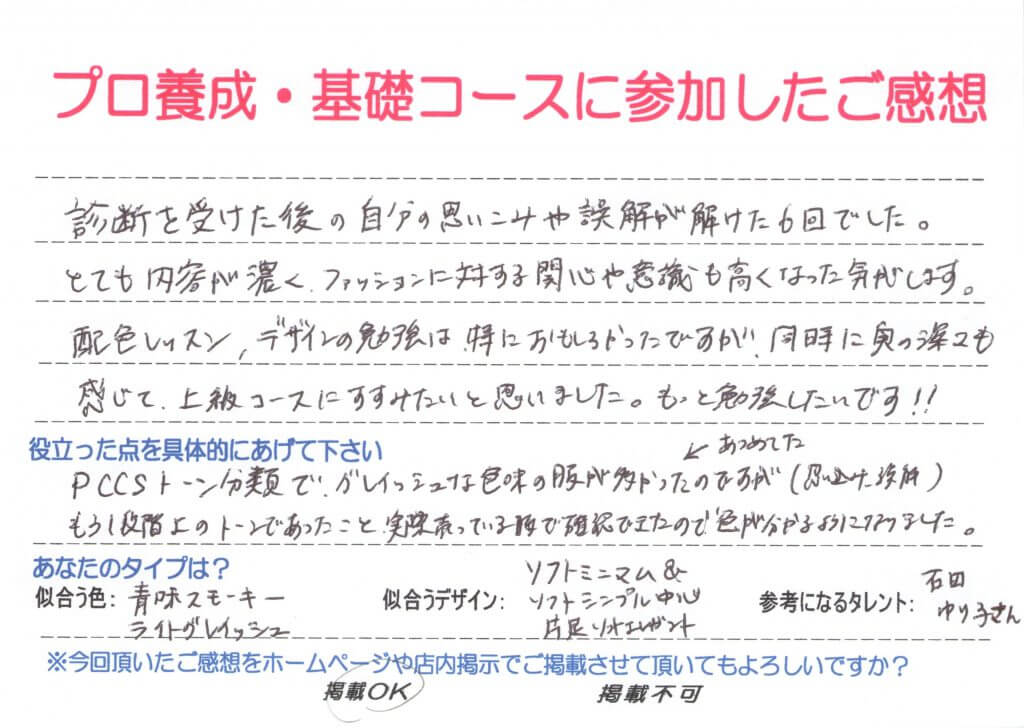 プロ養成・基礎コースに参加したご感想
診断を受けた後の自分の思いこみや誤解が解けた6回でした。
とても内容が濃く、ファッションに対する関心や意識も高くなった気がします。
配色レッスン、デザインの勉強は、特におもしろかったですが、同時に奥の深さも
感じて、上級コースにすすみたいと思いました。もっと勉強したいです!!
役立った点を具体的にあげて下さい
↙ あつめてた
PCCSトーン分類で、グレイッシュな色味の服が多かったのですが(思い込み
もう1段階上のトーンであったこと、実際持っている服で確認できたので色が分かるようになりました。
あなたのタイプは?
似合う色: 青味スモーキー
ライトグレイッシュ
似合うデザイン: ソフトミニマム&
ソフトシンプル中心
片足ソフトエレガント
参考になるタレント: 石田
ゆり子さん
※今回頂いたご感想をホームページや店内掲示でご掲載させて頂いてもよろしいですか?
掲載OK 掲載不可